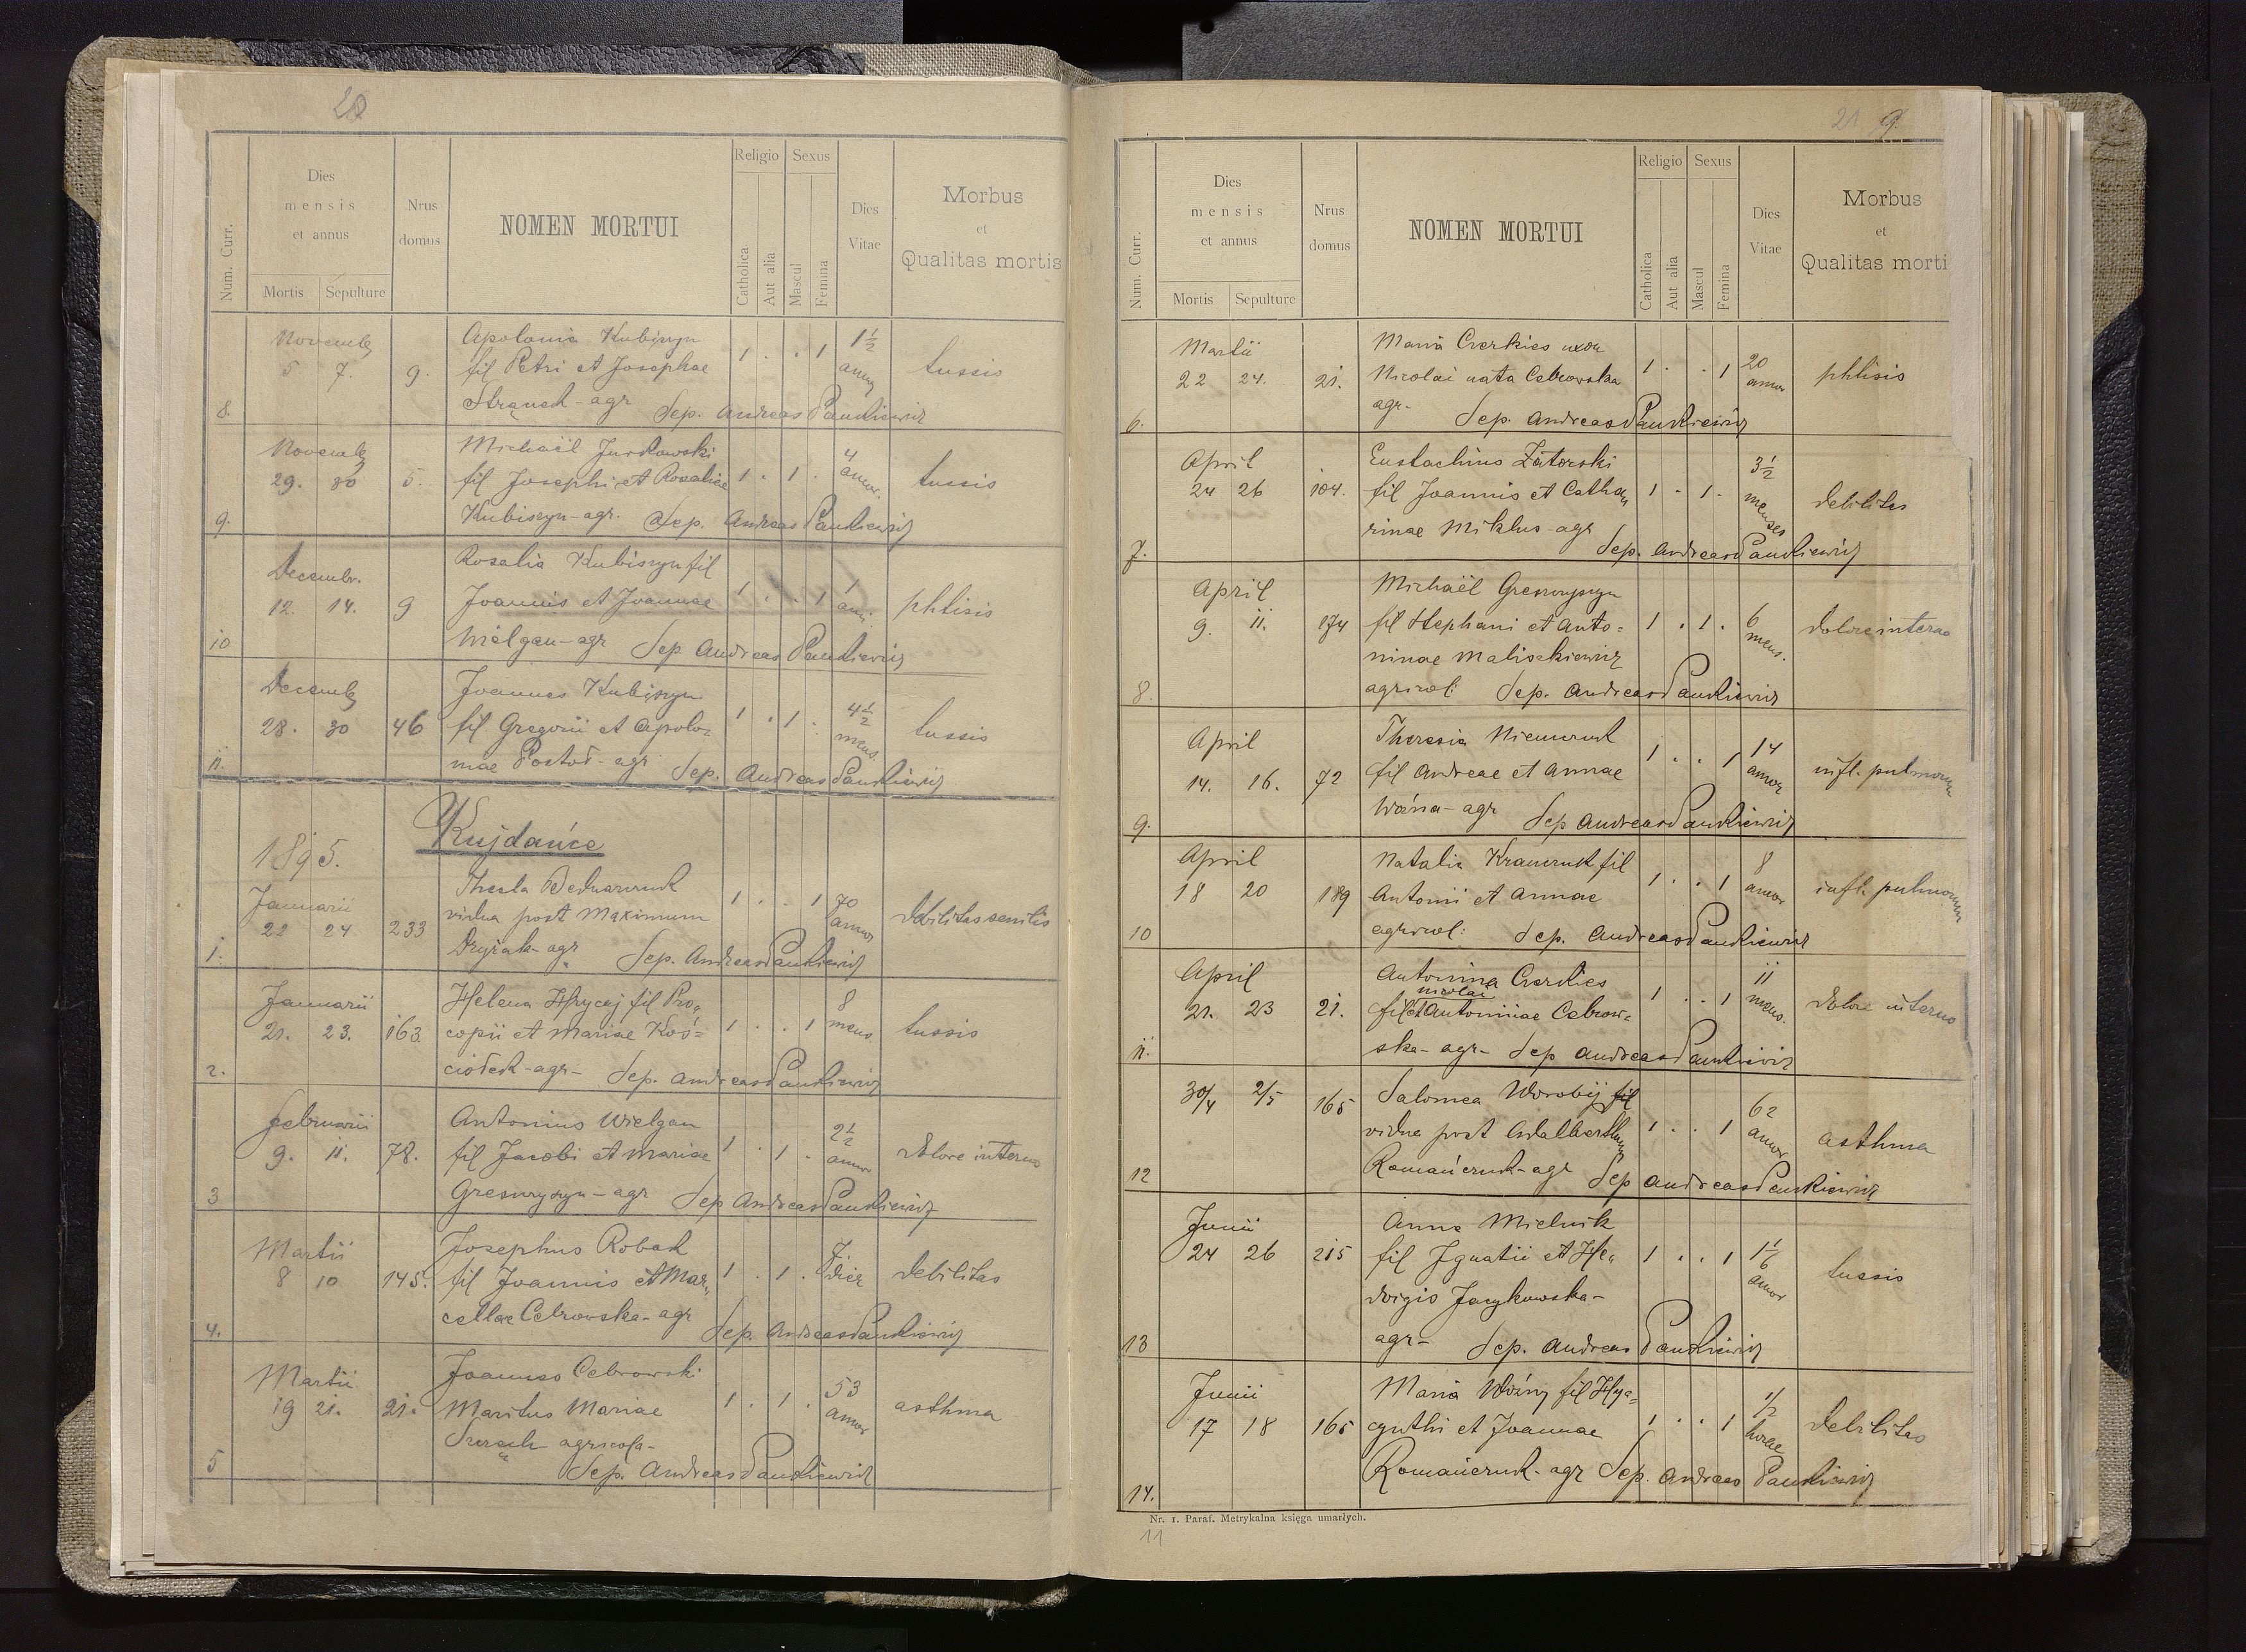 20
Num. Curr.
Dies mensis et annus
Mortis Sepulture
Nrus domus
NOMEN MORTUI
Religio
Catholica Aut alia
Sexus
Mascul Femina
Dies Vitae
Morbus et Qualitas mortis
Novemb
Apolonia Kubiszyn
1 . . 1 1½
5 7. 9. fil Petri et Josephae
annor
tussis
8. agr Sep. Andreas Pankiewicz
Novemb
Michaël Jurkowski
29. 30 5. fil Josephi et Rosaliae 1 . 1 . 4 annor. tussis
9. Kubiszyn-agr. Sep. Andreas Pankiewicz
Decembr.
Rosalia Kubiszyn fil
12. 14. 9 Joannis et Joannae 1 . . 1 1 ann. phtisis
10 Wielgan-agr Sep. Andreas Pankiewicz
Decemb
Joannes Kubiszyn
28. 30 46 fil Gregorii et Apolo= 1 . 1 . 4½ mens. tussis
11. niae Postoł-agr Sep. Andreas Pankiewicz
Kujdańce
1895.
Januarii
Thecla Bednarczuk
22 24 233 vidua post Maximum 1 . . 1 70 annor debilitas senilis
1. agr Sep. Andreas Pankiewicz
Januarii
Helena Hrycaj fil Pro=
21. 23. 163. copii et Mariae Koś= 1 . . 1 8 mens. tussis
2. ciołek-agr- Sep. Andreas Pankiewicz
Februarii
Antonius Wielgan
9. 11. 78. fil Jacobi et Mariae 1 . 1 . 2½ annor dolore interno
3 agr Sep Andreas Pankiewicz
Martii
Josephus Robak
8 10 145. fil Joannis et Mar= 1 . 1 . 7 dier debilitas
4. cellae Cebrowska-agr Sep. Andreas Pankiewicz
Martii
Joannes Cebrowski
19 21. 21. Maritus Mariae 1 . 1 . 53 annor asthma
agricola-
5 Sep. Andreas Pankiewicz
21 9.
Num. Curr.
Dies mensis et annus
Mortis Sepulture
Nrus domus
NOMEN MORTUI
Religio
Catholica Aut alia
Sexus
Mascul Femina
Dies Vitae
Morbus et Qualitas morti
Martii
Maria Czerkies uxor
22 24. 21. Nicolai nata Cebrowska 1 . . 1 20 annor phtisis
6. agr- Sep. Andreas Pankiewicz
April
Eustachius Zatorski
24 26 104. fil Joannis et Catha= 1 . 1 . 3½ menses debilitas
rinae Miklus-agr
7. Sep. Andreas Pankiewicz
April
Michaël
9. 11. 174 fil Stephani et Anto= 1 . 1 . 6 mens. dolore interno
ninae Maliszkiewicz
8. agricol: Sep. Andreas Pankiewicz
April
Theresia Niemczuk
14. 16. 72 fil Andreae et Annae 1 . . 1 14 annor infl. pulmonum
9. Woźna-agr Sep Andreas Pankiewicz
April
Natalia Krawczuk fil
18 20 189 Antonii et Annae 1 . . 1 8 annor infl. pulmonum
10 agricol: Sep. Andreas Pankiewicz
April
Antonina Czerkies
nicolai
21. 23 21. fil et Antoninae Cebrow= 1 . . 1 11 mens. dolore interno
11. ska-agr- Sep Andreas Pankiewicz
30/4 2/5 165 Salomea Worobij fil
vidua post Adalberthum 1 . . 1 62 annor asthma
12 Romańczuk-agr Sep Andreas Pankiewicz
Junii
Anna Mielnik
24 26 215 fil Ignatii et He= 1 . . 1 1 1/6 annor tussis
dvigis Jacykowska-
13 agr- Sep. Andreas Pankiewicz
Junii
Maria Woźny fil Hya=
17 18 165 cynthi et Joannae 1 . . 1 1/2 horae debilitas
14. Romańczuk-agr Sep. Andreas Pankiewicz
Nr. 1. Paraf. Metrykalna księga umarłych.
11